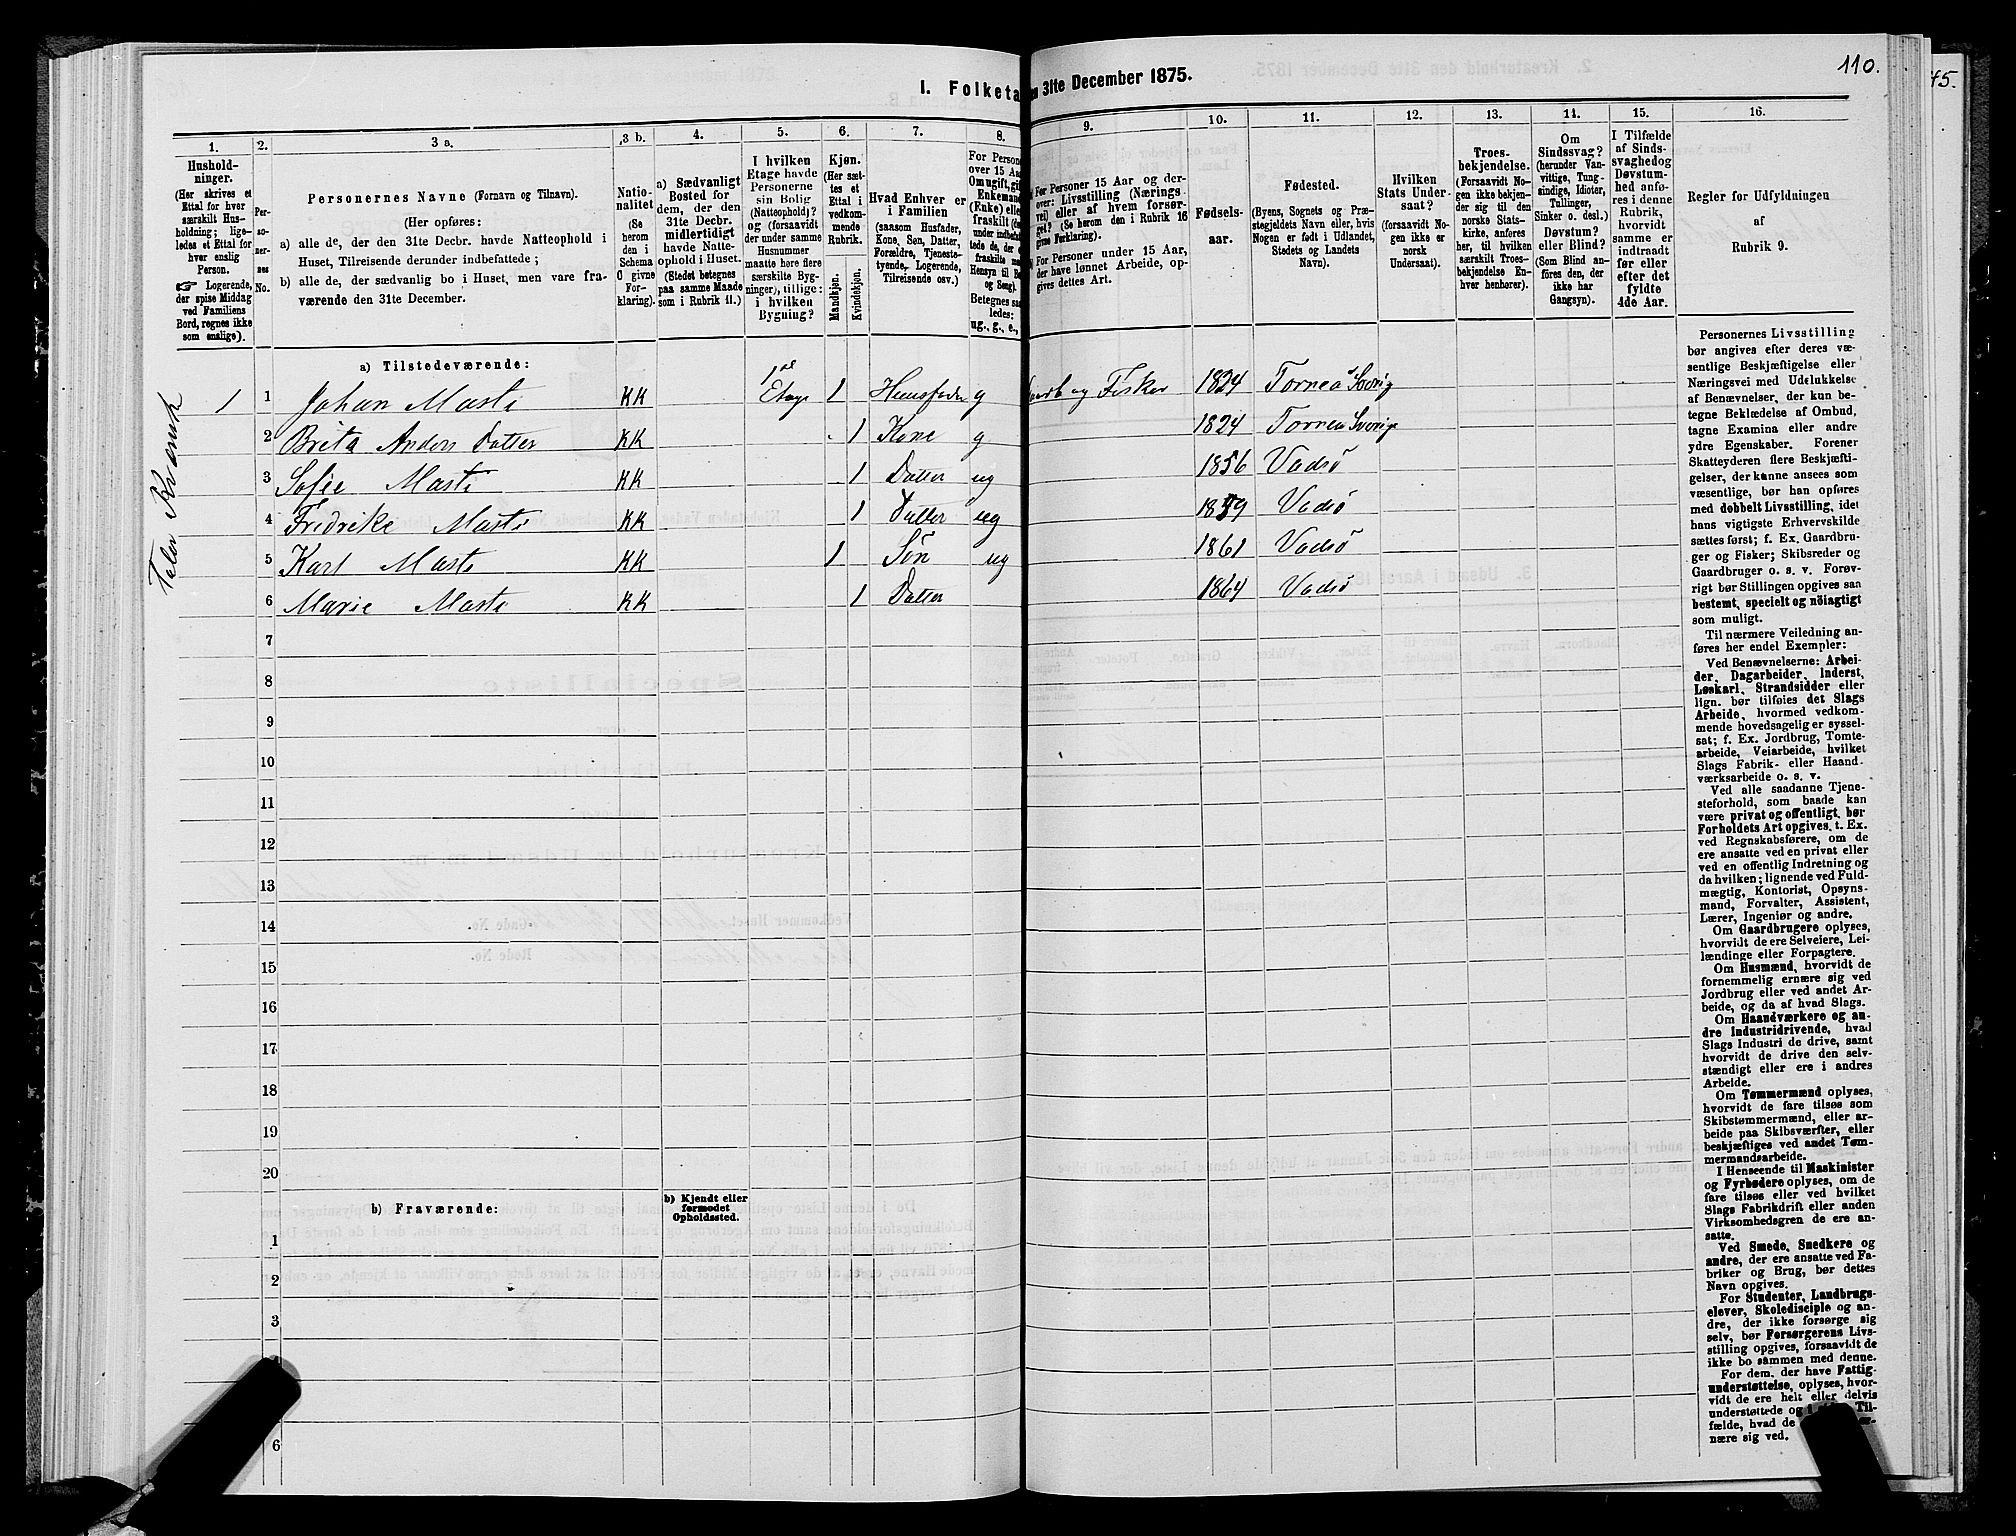 110.
45.
I. Folketa en 31te December 1875.
1. 2. 3 a. 3 b. 4. 5. 6. 7. 8. 9. 10. 11. 12. 13. 14. 15. 16.
Hushold-
ninger.
(Her skrives et
Ettal for hver
særskilt Hus-
holdning; lige-
ledes et Ettal for
hver enslig
Person.
☞ Logerende,
der spise Middag
ved Familiens
Bord, regnes ikke
som enslige).
Per-
so-
ner-
nes
No.
Personernes Navne (Fornavn og Tilnavn).
(Her opføres:
a) alle de, der den 31te Decbr. havde Natteophold i
Huset, Tilreisende derunder indbefattede;
b) alle de, der sædvanlig bo i Huset, men vare fra-
værende den 31te December.
Natio-
nalitet
(Se
herom
den i
Schema
C givne
For-
klaring).
a) Sædvanligt
Bosted for
dem, der den
31te Decbr.
midlertidigt
havde Natte-
ophold i Huset.
(Stedet betegnes
paa samme Maade
som i Rubrik 11.)
I hvilken
Etage havde
Personerne
sin Bolig
(Natteophold)?
og (forsaavidt
der under samme
Husnummer
maatte høre flere
særskilte Byg-
ninger), tillige:
i hvilken
Bygning?
Kjøn.
(Her sæt-
tes et
Ettal i
vedkom-
mende
Rubrik.
Mandkjøn.
Kvindekjøn.
Hvad Enhver er
i Familien
(saasom Husfader,
Kone, Søn, Datter,
Forældre, Tjeneste-
tyende, Logerende,
Tilreisende osv.)
For Persone
over 15 Aa
Om ugift, gif
Enkemand
(Enke) elle
fraskilt (de
under indbefatte
de, der e
fraskilte me
Hensyn til Bo
og Seng).
Betegnes saa
ledes:
ug., g., e.,
For Personer 15 Aar og der-
over: Livsstilling (Nærings
vei) eller af hvem forsør-
get? (Se herom den i Rubrik 16
givne Forklaring).
For Personer under 15 Aar,
der have lønnet Arbeide, op-
gives dettes Art.
Fødsels-
aar.
Fødested.
(Byens, Sognets og Præ-
stegjeldets Navn eller, hvis
Nogen er født i Udlandet,
Stedets og Landets
Navn).
Hvilken
Stats Under-
saat?
(forsaavidt No-
gen ikke er
norsk
Undersaat).
Troes-
bekjendelse.
(Forsaavidt No-
gen ikke beken-
der sig til den
norske Stats-
kirke, anføres
her, til hvilken
særskilt Troes-
bekjendelse En-
hver henhører).
Om
Sindssvag?
(herunder Van-
vittige, Tung-
sindige, Idioter,
Tullinger,
Sinker o. desl.)
Døvstum?
eller Blind?
(Som Blind an-
føres den, der
ikke har
Gangsyn).
I Tilfælde
af Sinds-
svaghed og
Døvstum-
hed anfø-
res i denne
Rubrik,
hvorvidt
samme er
indtraadt
før eller
efter det
fyldte
4de Aar.
Regler for Udfyldningen
af
Rubrik 9.
a) Tilstedeværende:
Taler Kvænsk
1 1 Johan Masti KK 1st Etage 1 Huusfader g Jordb og Fisker 1824 Tornea Sverig
2 Brita Anders Datter KK 1 Kone g 1824 Tornea Sverig
3 Sofie Masti KK 1 Datter ug 1856 Vadsø
4 Fredrike Masti KK 1 Datter ug 1859 Vadsø
5 Karl Masti KK 1 Søn ug 1861 Vadsø
6 Marie Masti KK 1 Datter 1864 Vadsø
7
8
9
10
11
12
13
14
15
16
17
18
19
20
b) Fraværende:
b) Kjendt eller
formodet
Opholdssted.
1
2
3
6
Personernes Livsstilling
bør angives efter deres væ-
sentlige Beskjæftigelse eller
Næringsvei med Udelukkelse
af Benævnelser, der kun be-
tegne Beklædelse af Ombud,
tagne Examina eller andre
ydre Egenskaber. Forener
Skatteyderen flere Beskjæfti-
gelser, der kunne ansees som
væsentlige, bør han opføres
med dobbelt Livsstilling, idet
hans vigtigste Erhvervskilde
sættes først; f. Ex. Gaardbru-
ger og Fisker; Skibsreder og
Gaardbruger o. s. v. Forøv-
rigt bør Stillingen opgives saa
bestemt, specielt og nøiagtigt
som muligt.
Til nærmere Veiledning an-
føres her endel Exempler:
Ved Benævnelserne: Arbei-
der, Dagarbeider, Inderst,
Løskarl, Strandsidder eller
lign. bør tilføies det Slags
Arbeide, hvormed vedkom-
mende hovedsagelig er syssel-
sat; f. Ex. Jordbrug, Tomte-
arbeide, Veiarbeide, hvilket
Slags Fabrik- eller Haand-
værksarbeide o. s. v.
Ved alle saadanne Tjene-
steforhold, som baade kan
være privat og offentligt, bør
Forholdets Art opgives, t. Ex.
ved Regnskabsførere, om de
ere ansatte ved en privat eller
ved en offentlig Indretning og
da hvilken; lignende ved Fuld-
mægtig, Kontorist, Opsyns-
mand, Forvalter, Assistent,
Lærer, Ingeniør og andre.
Om Gaardbrugere oplyses,
hvorvidt de ere Selveiere, Lei-
lændinge eller Forpagtere.
Om Husmænd, hvorvidt de
fornemmelig ernære sig ved
Jordbrug eller ved andet Ar-
beide, og da af hvad Slags.
Om Haandværkere og an-
dre Industridrivende, hvad
Slags Industri de drive, samt
hvorvidt de drive den selv-
stændigt eller ere i andres
Arbeide.
Om Tømmermænd oplyses,
hvorvidt de fare tilsøs som
Skibstømmermænd, eller ar-
beide paa Skibsværfter, eller
beskjæftiges ved andet Tøm-
mermandsarbeide.
I Henseende til Maskinister
og Fyrbødere oplyses, om de
fare tilsøs eller ved hvilket
Slags Fabrikdrift eller anden
Virksomhedsgren de ere an-
satte.
Ved Smede, Snedkere og
andre, der ere ansatte ved Fa-
briker og Brug, bør dettes
Navn opgives.
For Studenter, Landbrugs-
elever, Skoledisciple og an-
dre, der ikke forsørge sig
selv, bør Forsørgerens Livs-
stilling opgives, forsaavidt de
ikke bo sammen med denne.
For dem, der have Fattig-
understøttelse, oplyses, hvor-
vidt de ere helt eller delvis
understøttede og i Til-
fælde, hvad de
nære sig ved.